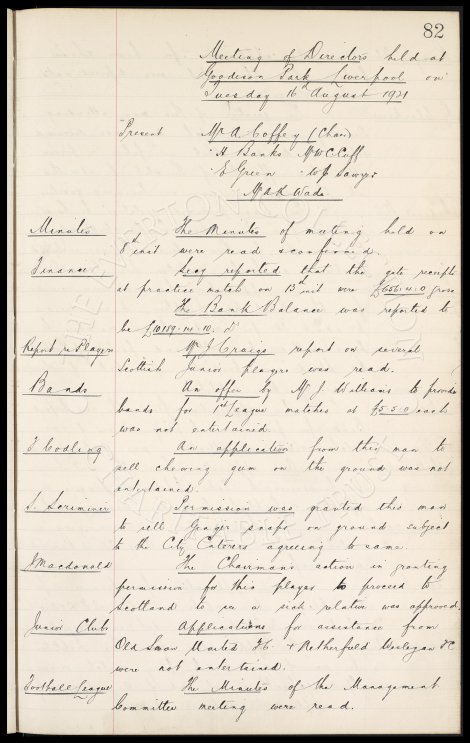 82
Meeting of Directors held at
Goodison Park Liverpool on
Tuesday 16th August 1921
Present Mr A. Coffey (Chair)
" H Banks Mr W.C. Cuff
" E Green " W J Sawyer
Mr A R Wade
Minutes The Minutes of meeting held on
8th inst were read & confirmed.
Finance Secy reported that the gate receipts
at practice match on 13th inst were £656.4.0 gross
The Bank Balance was reported to
be £10189.14.10.
Report re Players Mr J Craigs report on several
Scottish Junior players was read.
Bands An offer by Mr J Williams to provide
bands for 1st League matches at £5.5.0 each
was not entertained.
J Codling An application from this man to
sell chewing gum on the ground was not
entertained.
S. Scriminer Permission was granted this man
to sell Ginger snaps on ground subject
to the City Caterers agreeing to same.
J Macdonald The Chairmans action in granting
permission for this player to proceed to
Scotland to see a sick relative was approved.
Junior Clubs Applications for assistance from
Old Swan United F.C. + Netherfield Wesleyan FC
were not entertained.
Football League The Minutes of the Management
Committee meeting were read.